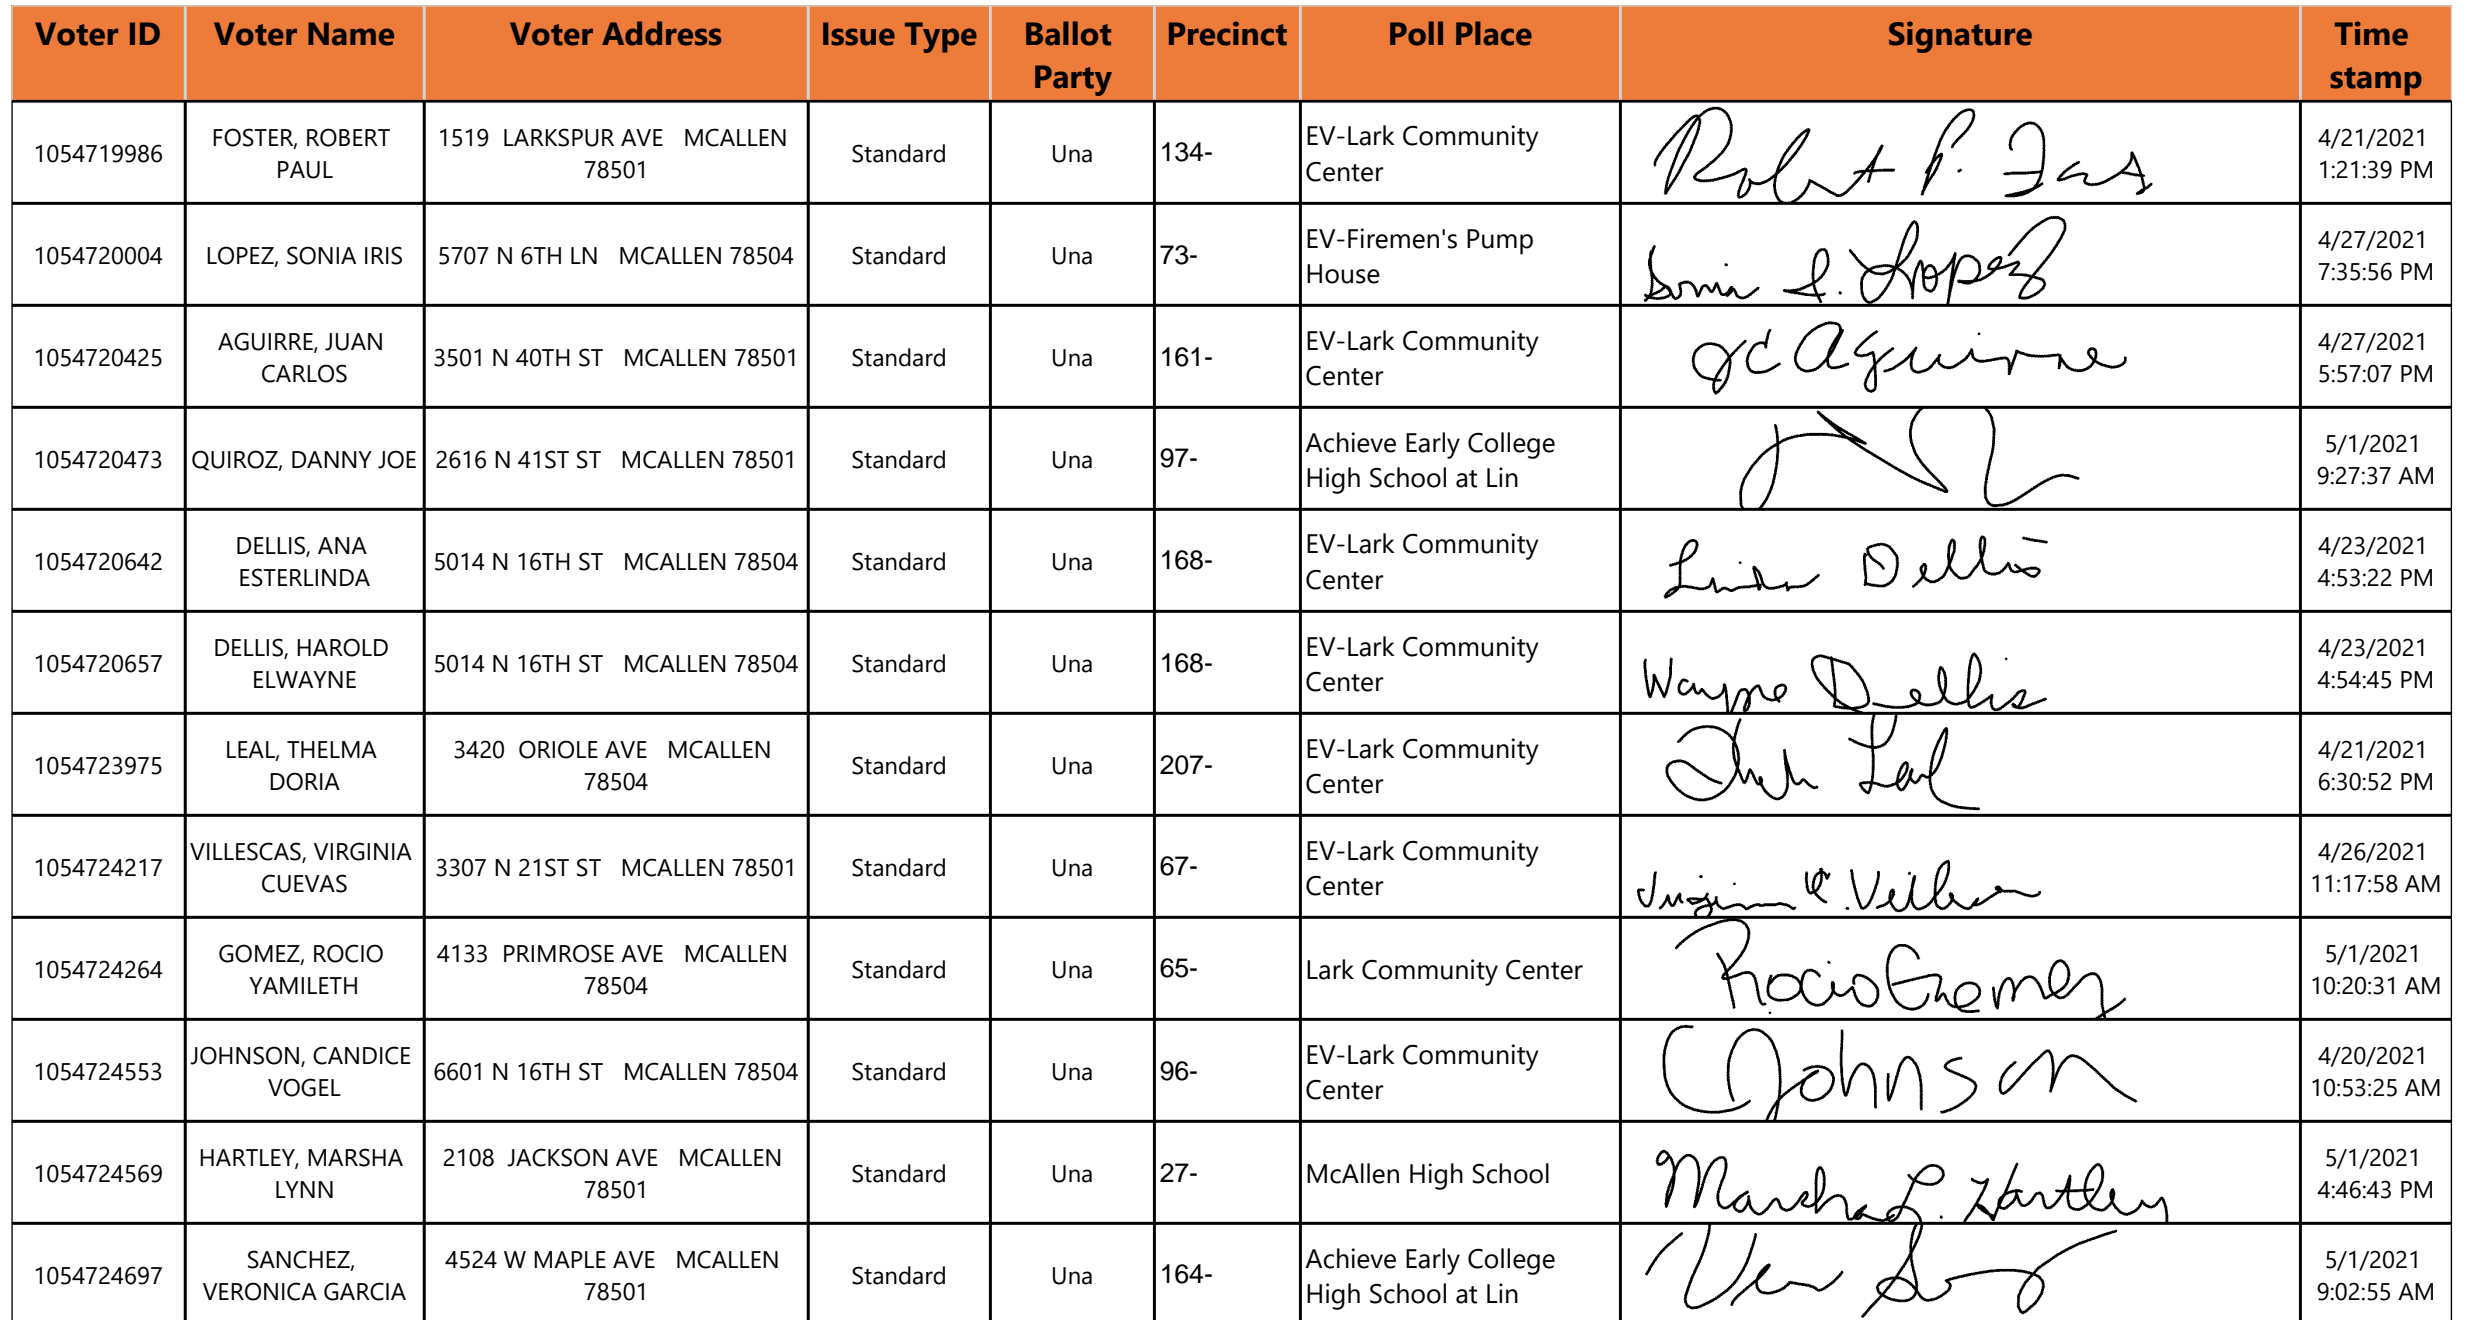 Voter ID Voter Name Voter Address Issue Type Ballot Party Precinct Poll Place Signature Time stamp
1054719986 FOSTER, ROBERT PAUL 1519 LARKSPUR AVE MCALLEN 78501 Standard Una 134- EV-Lark Community Center Robert P. 4/21/2021 1:21:39 PM
1054720004 LOPEZ, SONIA IRIS 5707 N 6TH LN MCALLEN 78504 Standard Una 73- EV-Firemen's Pump House Sonia I. Lopez 4/27/2021 7:35:56 PM
1054720425 AGUIRRE, JUAN CARLOS 3501 N 40TH ST MCALLEN 78501 Standard Una 161- EV-Lark Community Center JC Aguirre 4/27/2021 5:57:07 PM
1054720473 QUIROZ, DANNY JOE 2616 N 41ST ST MCALLEN 78501 Standard Una 97- Achieve Early College High School at Lin 5/1/2021 9:27:37 AM
1054720642 DELLIS, ANA ESTERLINDA 5014 N 16TH ST MCALLEN 78504 Standard Una 168- EV-Lark Community Center Linda Dellis 4/23/2021 4:53:22 PM
1054720657 DELLIS, HAROLD ELWAYNE 5014 N 16TH ST MCALLEN 78504 Standard Una 168- EV-Lark Community Center Wayne Dellis 4/23/2021 4:54:45 PM
1054723975 LEAL, THELMA DORIA 3420 ORIOLE AVE MCALLEN 78504 Standard Una 207- EV-Lark Community Center Leal 4/21/2021 6:30:52 PM
1054724217 VILLESCAS, VIRGINIA CUEVAS 3307 N 21ST ST MCALLEN 78501 Standard Una 67- EV-Lark Community Center Virginia C. 4/26/2021 11:17:58 AM
1054724264 GOMEZ, ROCIO YAMILETH 4133 PRIMROSE AVE MCALLEN 78504 Standard Una 65- Lark Community Center Rocio Gomez 5/1/2021 10:20:31 AM
1054724553 JOHNSON, CANDICE VOGEL 6601 N 16TH ST MCALLEN 78504 Standard Una 96- EV-Lark Community Center CJohnson 4/20/2021 10:53:25 AM
1054724569 HARTLEY, MARSHA LYNN 2108 JACKSON AVE MCALLEN 78501 Standard Una 27- McAllen High School Marsha L. Hartley 5/1/2021 4:46:43 PM
1054724697 SANCHEZ, VERONICA GARCIA 4524 W MAPLE AVE MCALLEN 78501 Standard Una 164- Achieve Early College High School at Lin 5/1/2021 9:02:55 AM